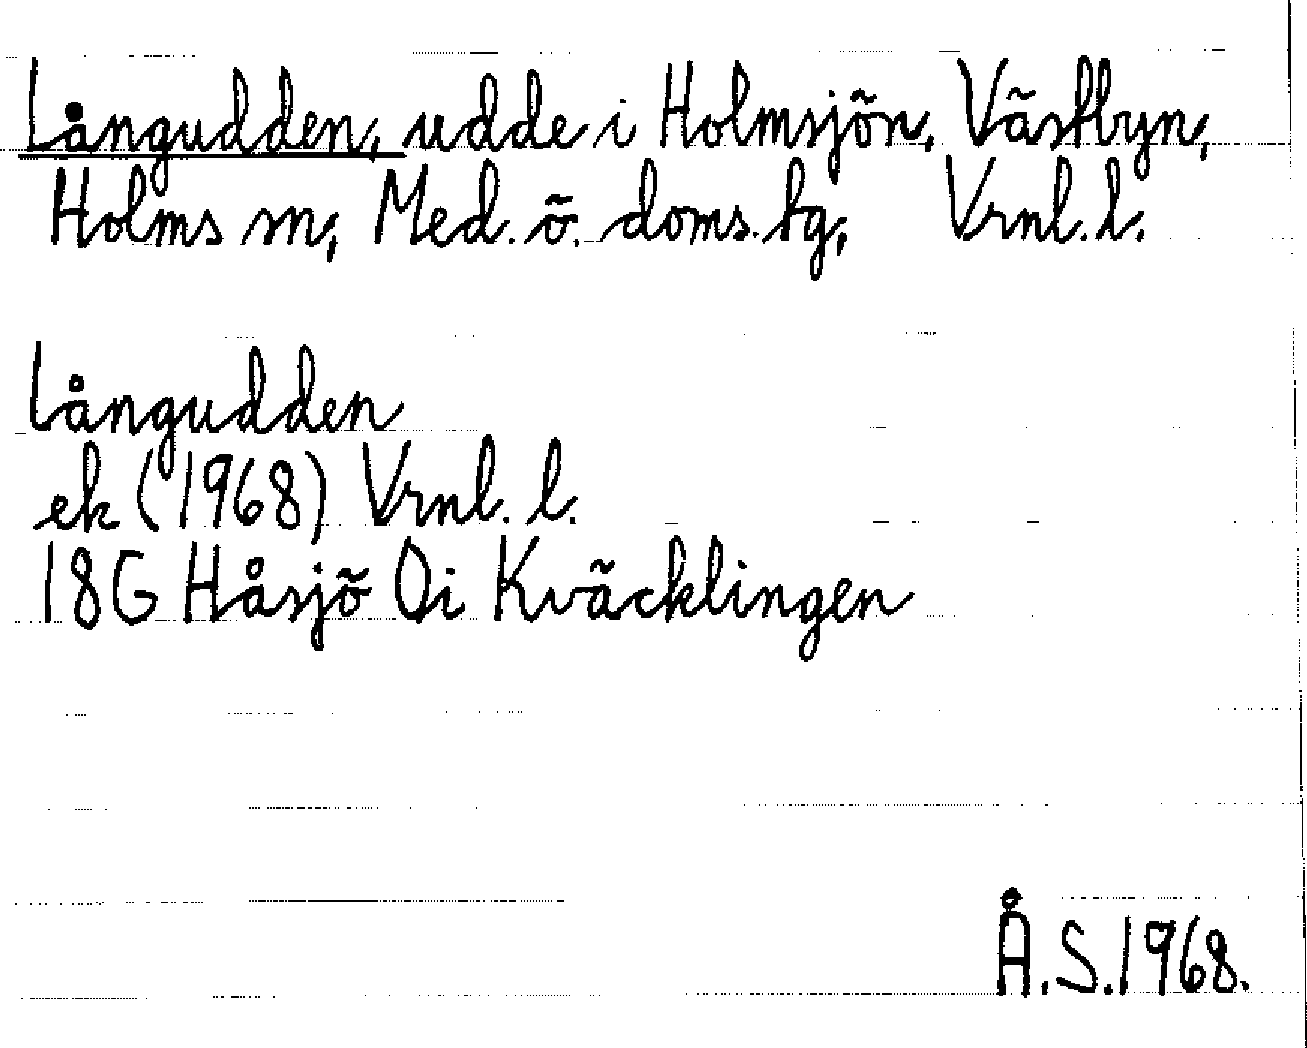 Långudden, udde i Holmsjön, Västbyn,
Holms sn, Med. ö. doms. tg, Vrnl. l.
Långudden
ek (1968) Vrnl. l.
18G Håsjö 0i Kväcklingen
Å.S.1968.